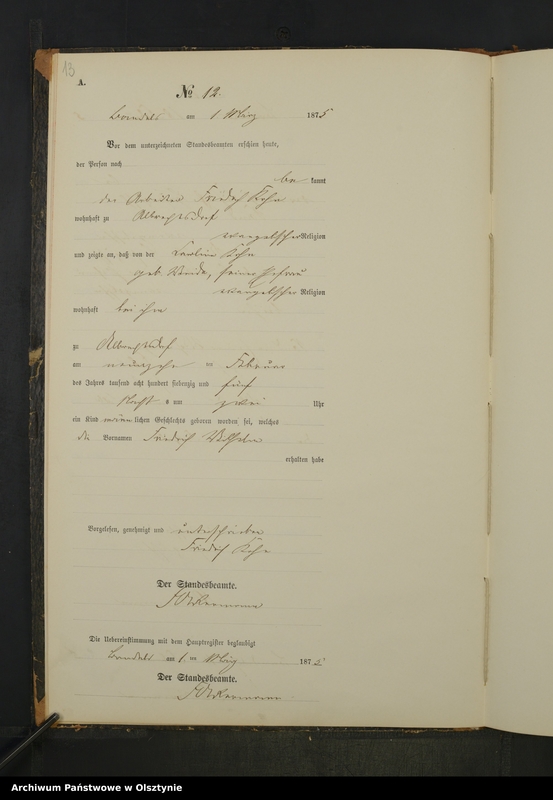 13
A.
№ 12.
am 1 März 1875
Vor dem unterzeichneten Standesbeamten erschien heute,
der Person nach
be kannt
der Arbeiter Friedrich
wohnhaft zu Albrechtsdorf
evangelischer Religion
und zeigte an, daß von der
geb. seiner Ehefrau
evangelischer Religion
wohnhaft bei ihm
zu Albrechtsdorf
am neunzehn ten Februar
des Jahres tausend acht hundert siebenzig und fünf
Nachts um zwei Uhr
ein Kind männlichen Geschlechts geboren worden sei, welches
die Vornamen Friedrich Wilhelm
erhalten habe
Vorgelesen, genehmigt und unterschrieben
Friedrich
Der Standesbeamte.
Die Uebereinstimmung mit dem Hauptregister beglaubigt
am 1. ten März 1875
Der Standesbeamte.
Archiwum Państwowe w Olsztynie